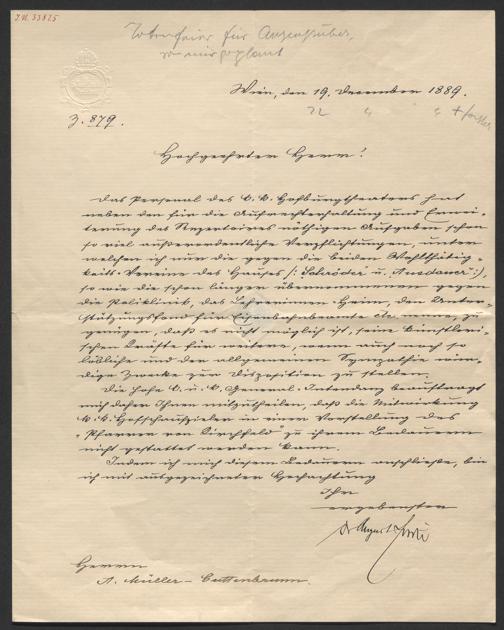 J.N. 33825
Totenfeier für Anzengruber,
von mir geplant
Wien, den 19. December 1889.
22 " " "
Z. 879.
Hochgeehrter Herr!
Das Personal des k. k. Hofburgtheaters hat
neben den für die Aufrechterhaltung und Erwei-
terung des Repertoires nöthigen Aufgaben schon
so viel außerordentliche Verpflichtungen, unter
welchen ich nur die gegen die beiden Wohlthätig-
keits-Vereine des Hauses /: Schröder u. :/,
so wie die schon längst übernommenen gegen
die Poliklinik, das Lehrerinnen-Heim, den Unter-
stützungsfond für Eisenbahnbeamte etc. nenne, zu
genügen, daß es nicht möglich ist, seine künstleri-
schen Kräfte für weitere, wenn auch noch so
löbliche und der allgemeinen Sympathie wür-
dige Zwecke zur Disposition zu stellen.
Die hohe k. u. k. General-Intendanz beauftragt
mich daher Ihnen mitzutheilen, daß die Mitwirkung
k. k. Hofschauspieler in einer Vorstellung des
"Pfarrer von Kirchfeld" zu ihrem Bedauern
nicht gestattet werden kann.
Indem ich mich diesem Bedauern anschließe, bin
ich mit ausgezeichneter Hochachtung
Ihr
ergebenster
Dr August Förster
Herrn
A. Müller-Guttenbrunn.